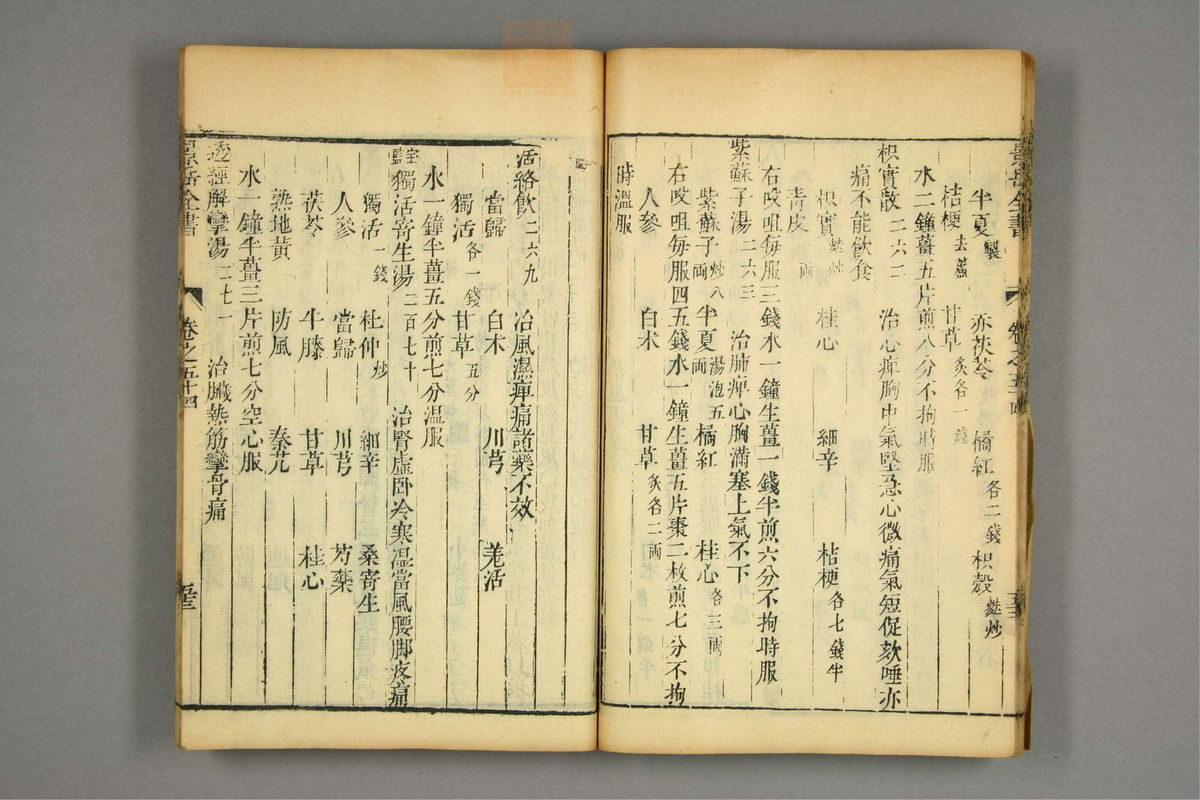 景岳全書
卷之五十四
半夏製 赤茯苓 橘紅各二錢 枳殼麩炒
桔梗去蘆 甘草炙各一錢
水二鐘薑五片煎八分不拘時服
枳實散二六二 治心痺胸中氣堅急心微痛氣短促欬唾亦
痛不能飲食
枳實麩炒 桂心 細辛 桔梗各七錢半
青皮一兩
右㕮咀每服三錢水一鐘生薑一錢半煎六分不拘時服
紫蘇子湯二六三 治肺痺心胸滿塞上氣不下
紫蘇子炒八兩 半夏湯泡五兩 橘紅 桂心各三兩
人參 白术 甘草炙各二兩
右㕮咀每服四五錢水一鐘生薑五片棗二枚煎七分不拘
時溫服
活絡飲二六九 治風濕痺痛諸藥不效
當歸 白术 川芎 羌活
獨活各一錢 甘草五分
水一鐘半薑五分煎七分温服
寶鑑獨活寄生湯二百七十 治腎虛卧冷寒湿當風腰脚疼痛
獨活一錢 杜仲炒 細辛 桑寄生
人參 當歸 川芎 芍藥
茯苓 牛膝 甘草 桂心
熟地黃 防風 秦艽
水一鐘半薑三片煎七分空心服
透經解攣湯二七一 治臟熱筋攣骨痛
景岳全書
卷之五十四